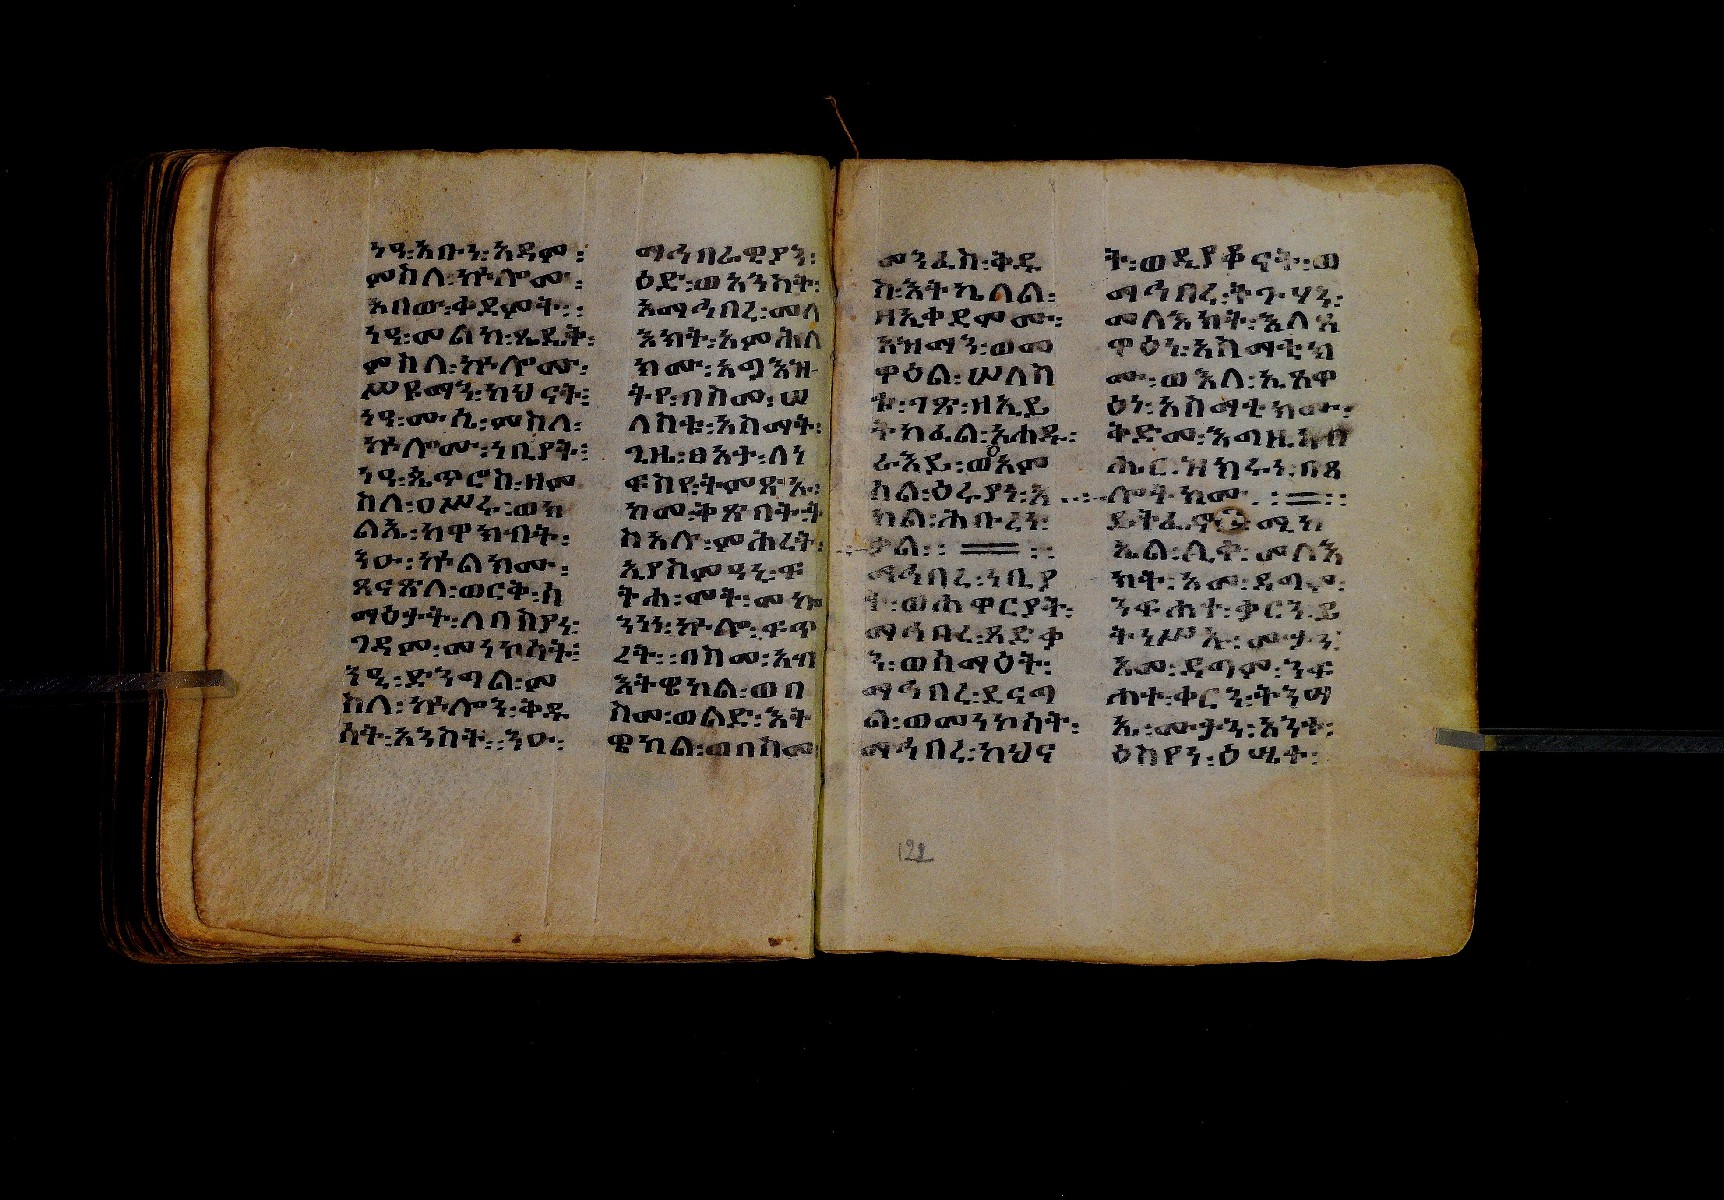 ነዓ፡አቡን፡አዳም፡
ምስለ፡ኵሎሙ፡
አበው፡ቀደምት፡፡
ነዓ፡መልከ፡ጼዴቅ፡
ምስለ፡ኵሎሙ፡
ሥዩማን፡ካህናት፡
ነዓ፡ሙሴ፡ምስለ፡
ኵሎሙ፡ነቢያት፡
ነዓ፡ጴጥሮስ፡ዘም
ስለ፡፲ወ
ልኡ፡ከዋክብት፡
ንዑ፡ኵልክሙ፡
ጻናጽለ፡ወርቅ፡ሰ
ማዕታት፡ለበስያነ፡
ገዳም፡መነኮሳት፡
ንዒ፡ድንግል፡ም
ስለ፡ኵሎን፡ቅዱ
ሳት፡አንስት፡፡ንዑ፡
ማኅበራዊያን፡
ዕድ፡ወአንስት፡
እማኅበረ፡መላ
እክት፡አምሕለ
ክሙ፡እግእዝ
ትየ፡በስመ፡ሠ
ለስቱ፡አስማት፡
ጊዜ፡ፀአተ፡ለነ
ፍስየ፡ትምጽኡ፡
ከመ፡ቅጽበት፡ት
ስአሉ፡ምሕረት፡
ኢያስምዓኒ፡ዋ
ኵሎ፡ፍጥ
ረት፡፡በስመ፡አብ
እትዌከል፡ወበ
ስመ፡ወልድ፡እት
ዌከል፡ወበስመ
መንፈስ፡ቅዱ
ስ፡እትኤለል፡
ዘኢቀደምሙ፡
እዝማን፡ወመ
ዋዕል፡ሠለስ
ቱ፡ገጽ፡ዘኢይ
ትከፈል፡አሐዱ፡
ራእይ፡ወእም
ከል፡ዕሩያነ፡አ
ካል፡ሕቡረነ፡
ቃል፡፡ ፡፡
ማኅበረ፡ነቢያ
ት፡ወሐዋርያት፡
ማኅበረ፡ጻድቃ
ን፡ወሰማዕት፡
ማኅበረ፡ደናግ
ል፡ወመነኮሳት፡
ማኅበረ፡ካህና
ት፡ወዲያቆናት፡ወ
ማኅበረ፡ትጉሃን፡
መላእክት፡እለ
ዋዕነ፡አስማቲክ
ሙ፡ወእለ፡ኢጸዋ
ዕነ፡አስማቲክሙ፡
ትድመ፡እግዚአብ
ሔር፡ዝክሩነ፡በጸ
ሎትክሙ፡፡
ይትፌኖ፡ሚካ
ኤል፡ሊቀ፡መላእ
ክት፡እመ፡ደግም፡
ንፍሐተ፡ቃርን፡ይ
ትነሥኡ፡ሙታን፡
እመ፡ደግም፡ንፍ
ሐተ፡ቀርን፡ትንሣ
ኤ፡ሙታን፡አንቀ፡
ዕስየነ፡ዕሤተ፡
121